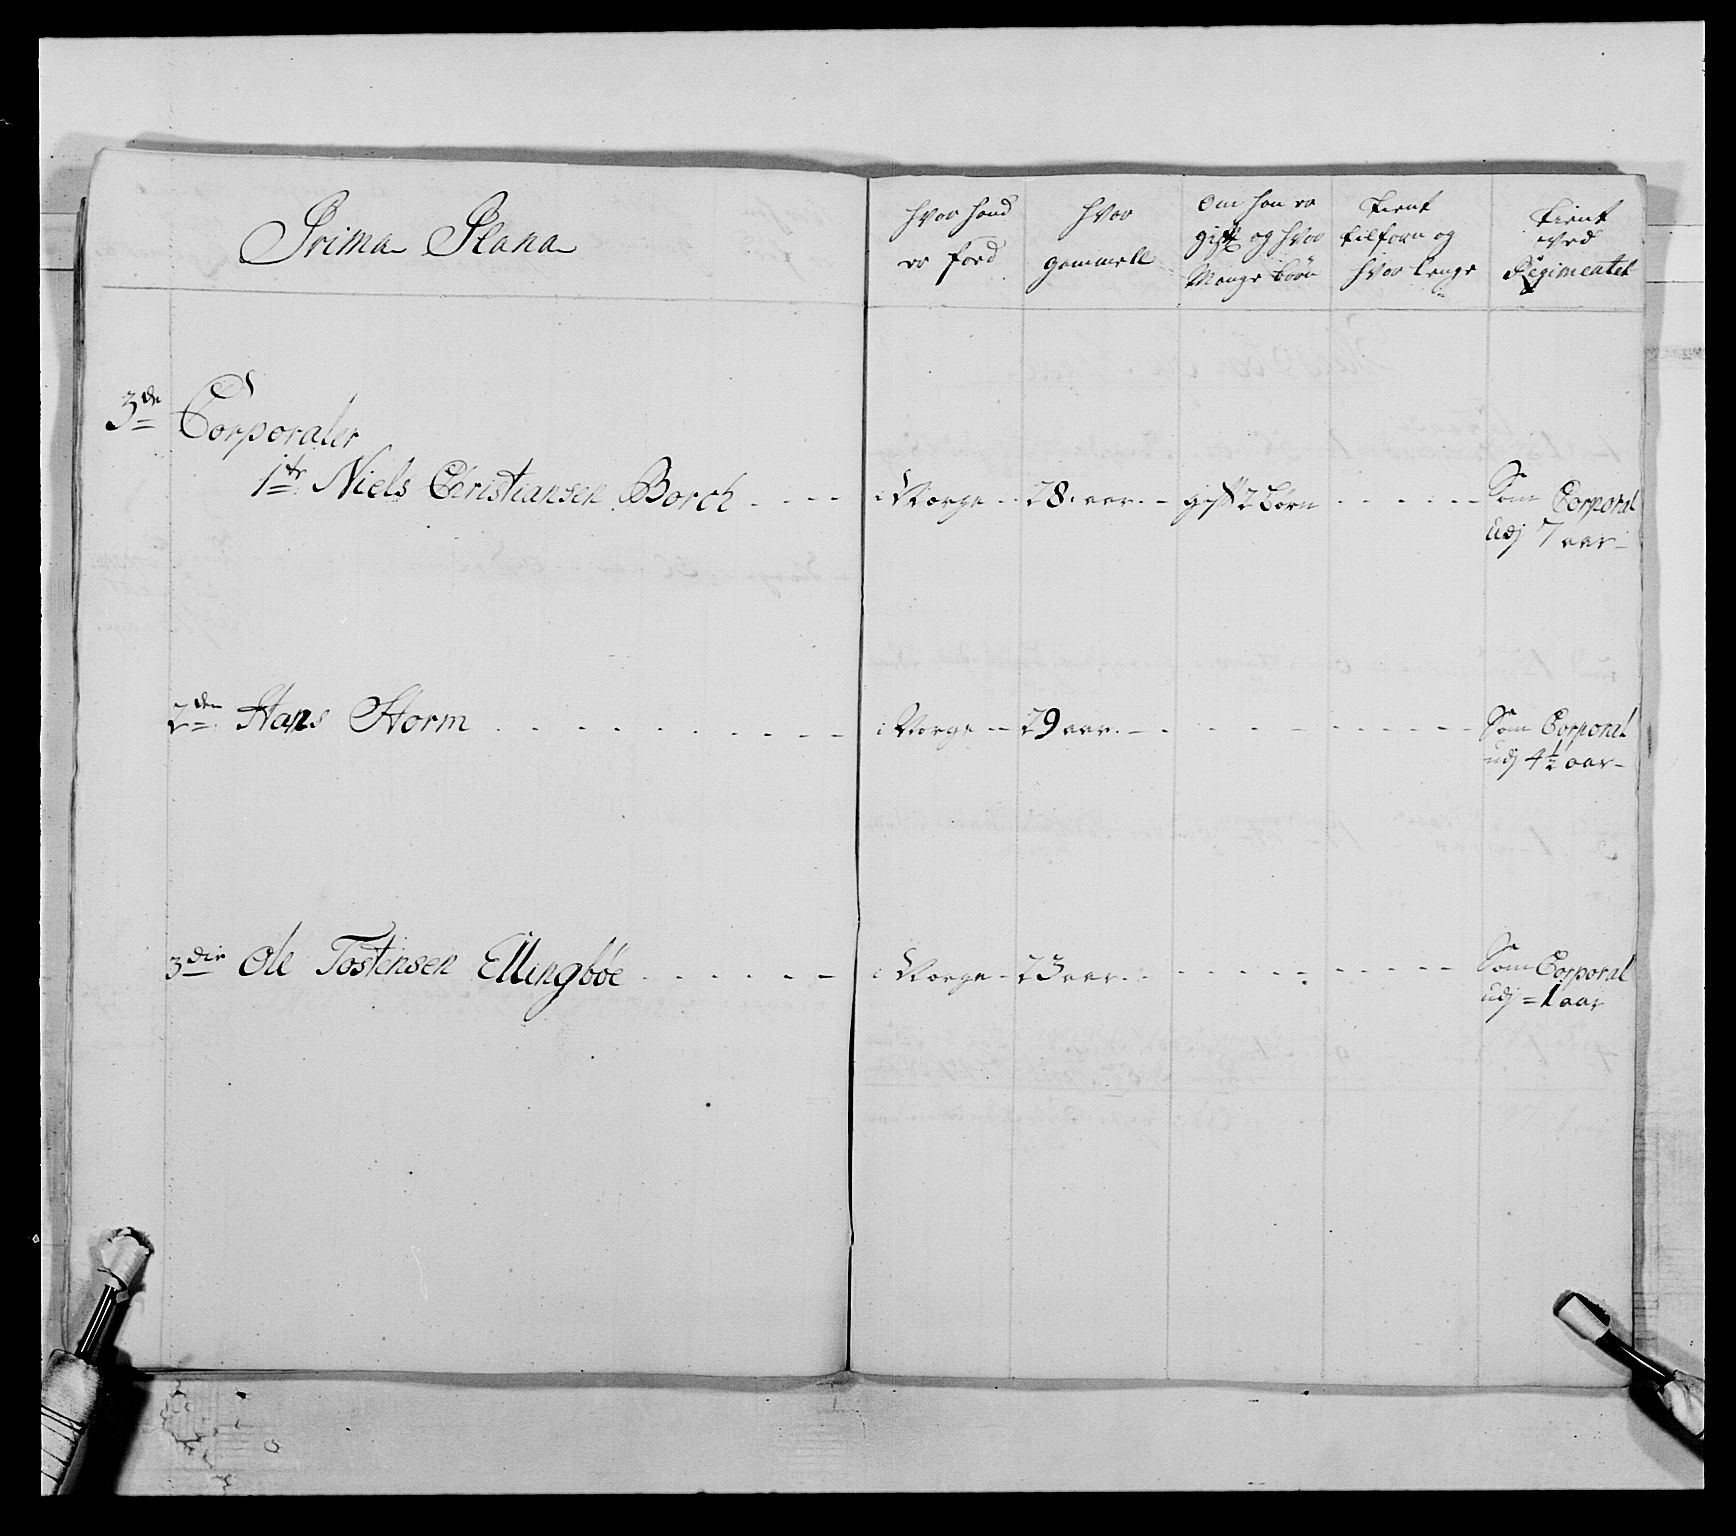 Prima Plana
hvor hand er fød
hvor gammell
Om han er gift og hvor Mange børn
tient tilforn og hvor lenge
tient ved Regimentet
3de Corporaler
1te Niels Christiansen Borch - - - - i Norge - - 28 aar. - gift 2 børn - - - - - - Som Corporal
udj 7 aar -
2den Hans Storm - - - - - - - - - - i Norge - - 29 aar. - - - - - - - - - Som Corporal
udj 4 1/2 aar -
3die Ole Tostensen Ellingbøe - - - - - - i Norge - 23 aar. - - - - - - - - - Som Corporal
udj = 1 aar